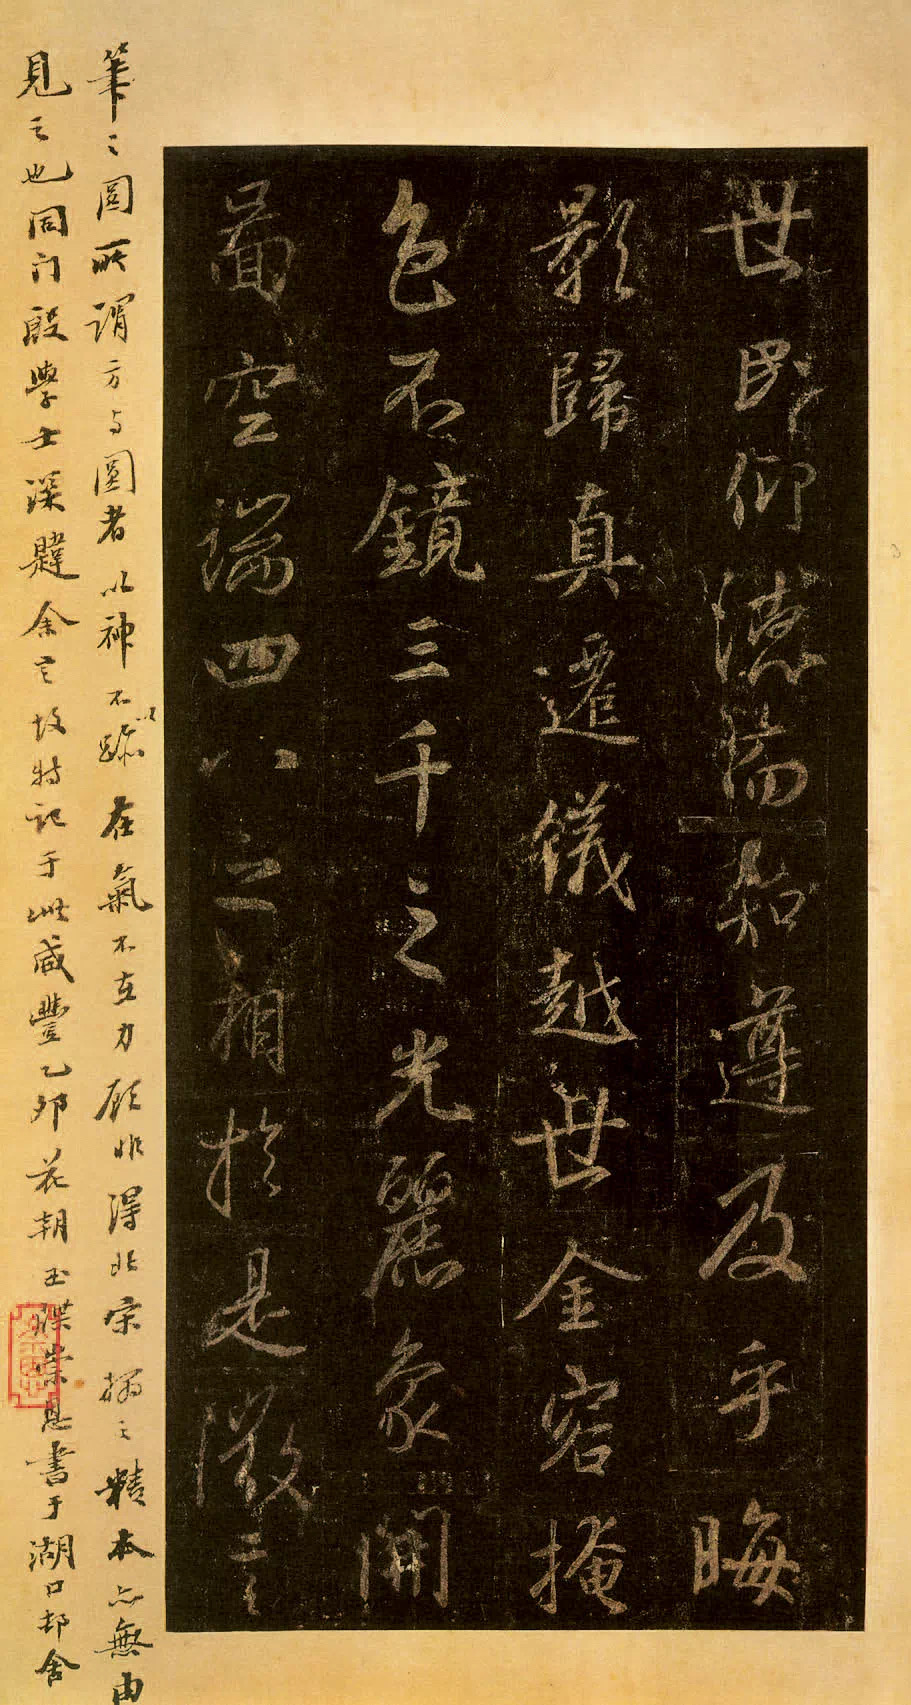 世民仰德而知遵及乎晦
影歸真遷儀越世金容掩
色不鏡三千之光麗象開
圖空端四八之相於是微言
筆之圓所謂方与圓者以神不以跡在氣不在力顧非得北宋搨之精本亦無由
見之也同门殷學士深韙余言故特記于此咸豐乙卯花朝玉牒崇恩書于湖口邨舍